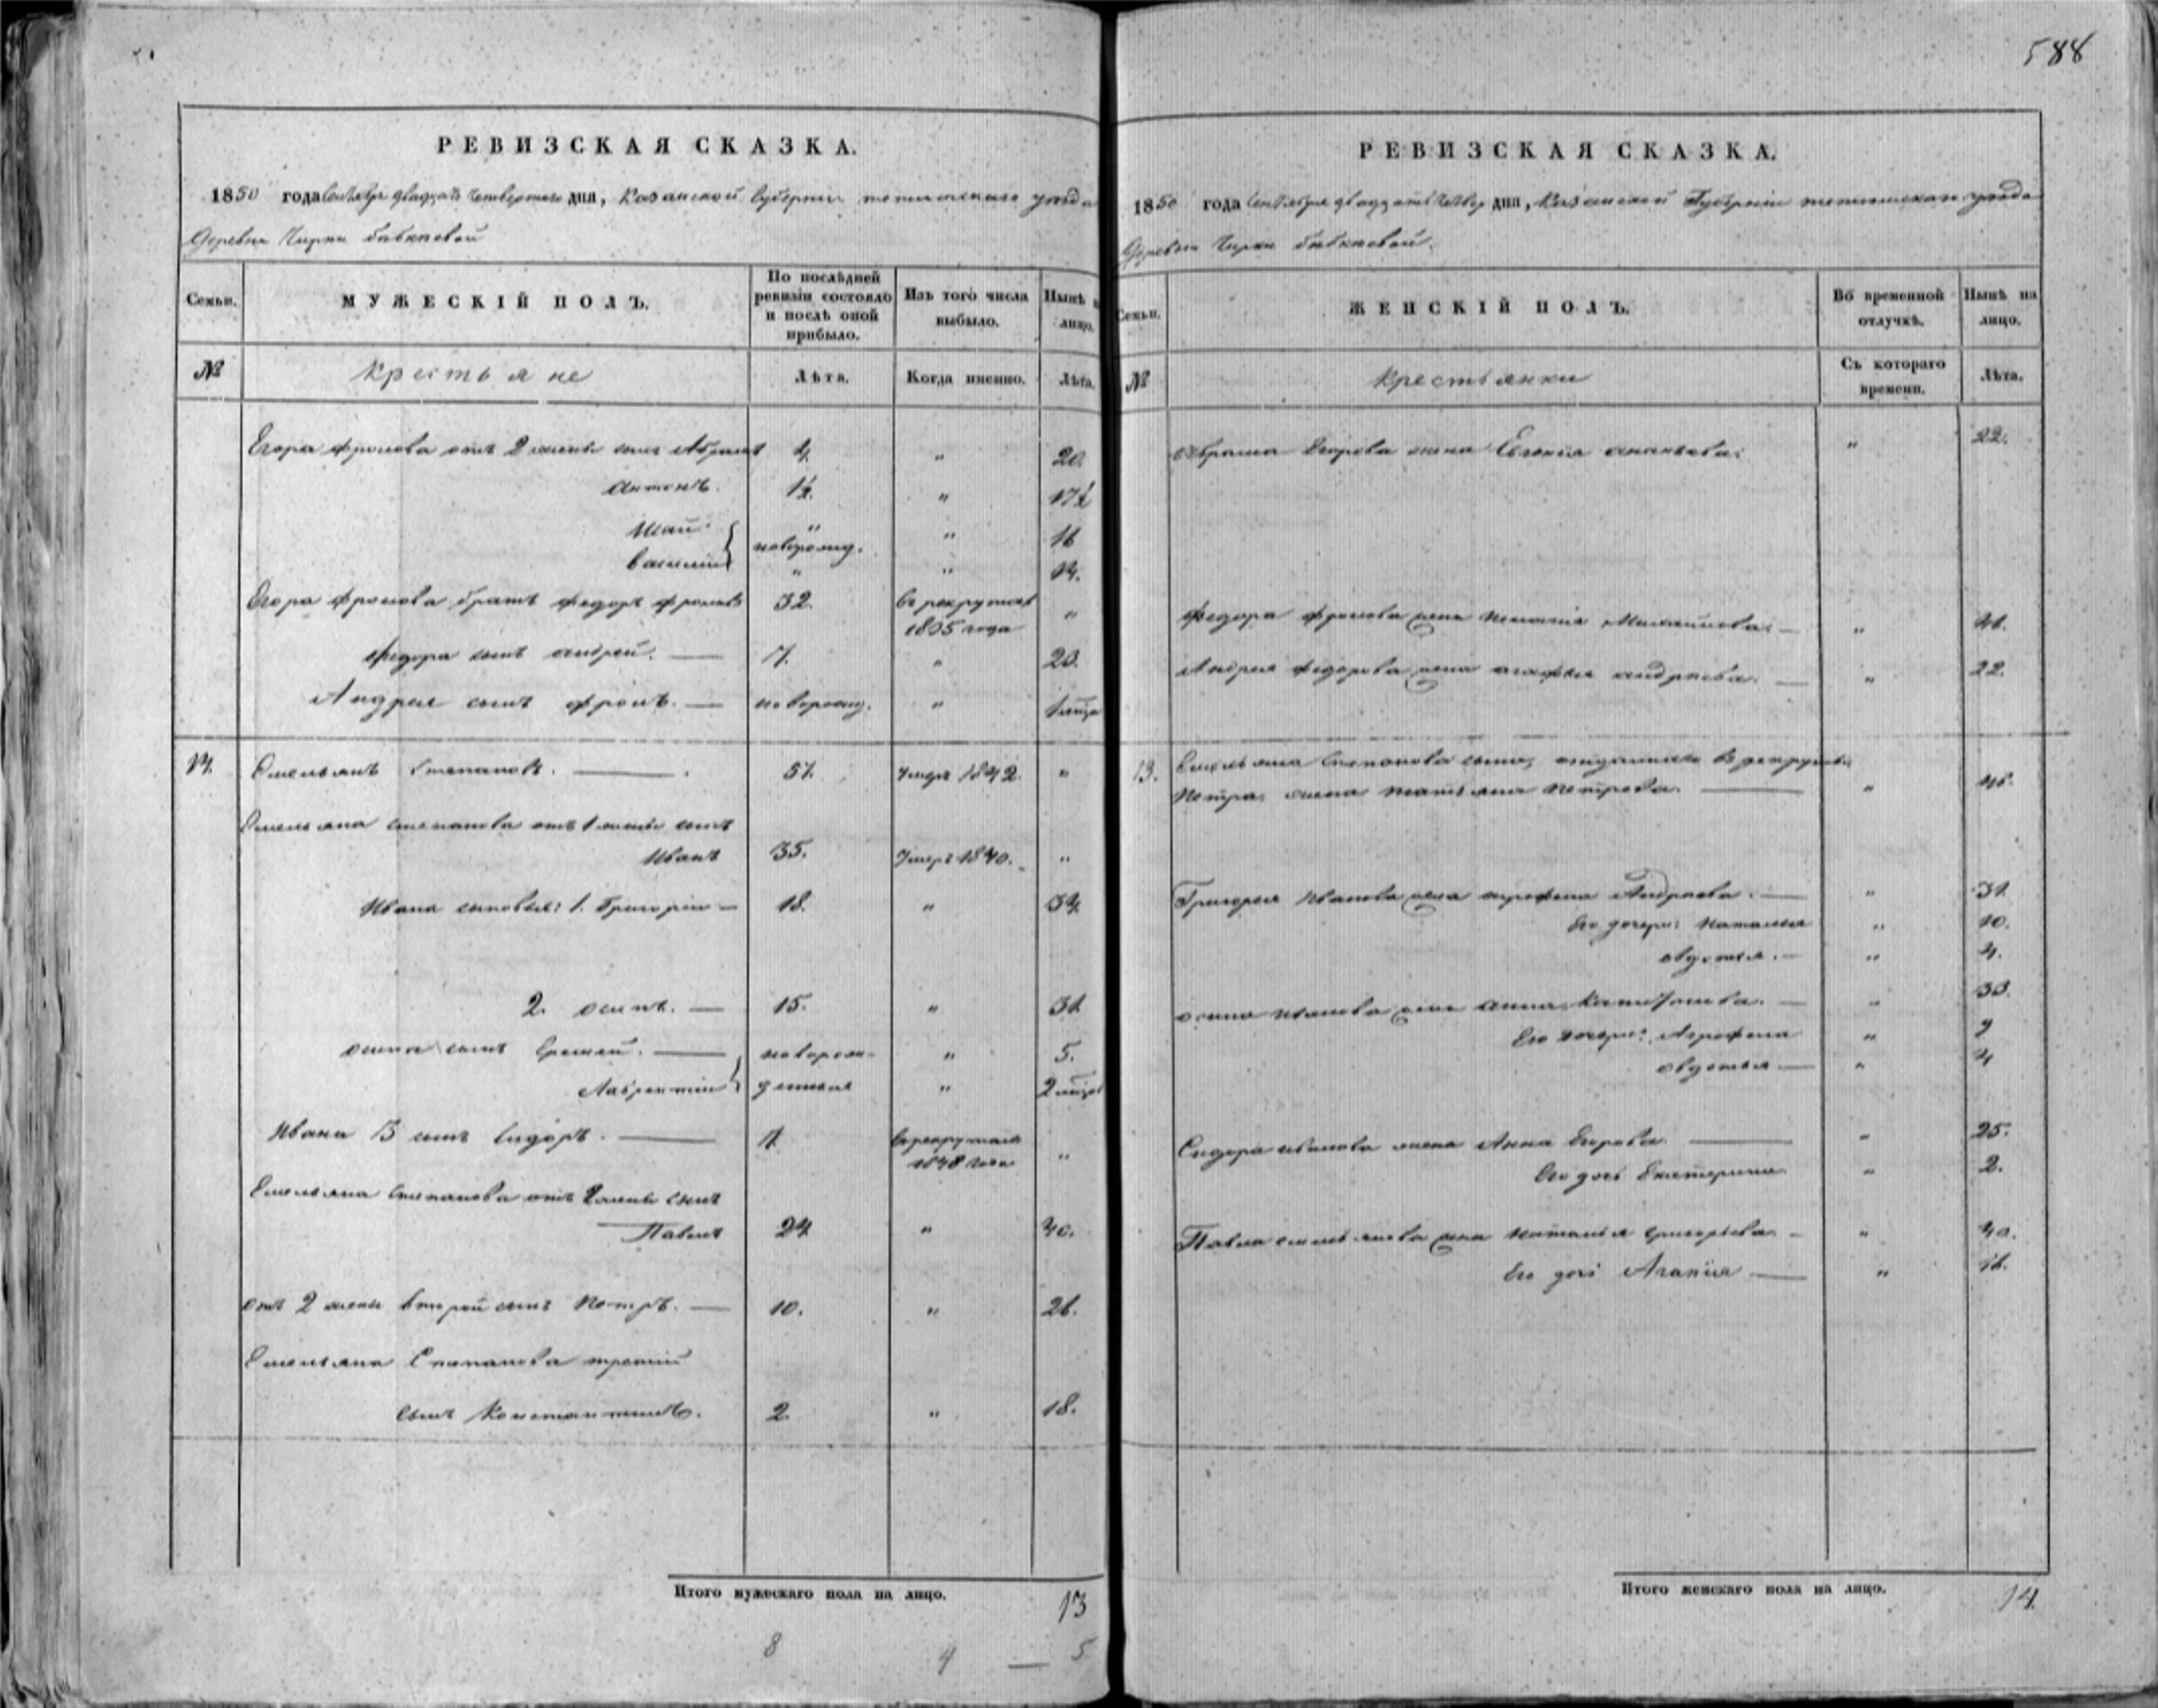 588
РЕВИЗСКАЯ СКАЗКА.
1850 года Сентября двадцать четвертого дня, Казанской Губернии тетюшскаго уезда
Деревни Чирки
Семьи.
МУЖЕСКІЙ ПОЛЪ.
По послѣдней ревизіи состояло и послѣ оной прибыло.
Изъ того числа выбыло.
Нынѣ на лицо.
№
крестьяне
Лѣта.
Когда именно.
Лѣта.
Егора фролова отъ 2 жены сынъ Абрамъ 4. " 20.
Антонъ. 1½. " 17½
"  " 16
Василій новорожд. " 14.
Егора фролова братъ федоръ фроловъ 32. Въ рекрутахъ 1835 года "
федора сынъ андрей. 7. " 23.
Андрея сынъ фролъ. новорожд. "
14. Емельянъ Степановъ. 51. Умеръ 1842. "
Емельяна степанова отъ 1 жены сынъ
Иванъ 35. Умеръ 1840. "
Ивана сыновья: 1. Григорій 18. " 34
2. осипъ. 15. " 31
осипа сынъ Еремей. новорож- " 5.
Лаврентій денные "
Ивана 3 сынъ Сидоръ. 11. Въ рекрутахъ "
Емельяна Степанова отъ 2 жены сынъ
Павелъ 24 " 40.
отъ 2 жены второй сынъ Петръ. 10. " 26.
Емельяна Степанова третій
сынъ Константинъ. 2. " 18.
Итого мужескаго пола на лицо. 13
8 4 — 5
РЕВИЗСКАЯ СКАЗКА.
1850 года Сентября двадцать четвер дня, Казанской Губерніи тетюшскаго уезда
Деревни Чирки
Семьи.
ЖЕНСКІЙ ПОЛЪ.
Во временной отлучкѣ.
Нынѣ на лицо.
№
крестьянки
Съ котораго времени.
Лѣта.
Абрама Егорова жена Евгенія ананьева. " 22.
федора фролова жена Михайлова. "
Андрея федорова жена агафья андреева. " 22.
13. Емельяна Степанова сына, отданнаго въ рекруты
Петра, жена татьяна петрова. "
Григорья Иванова жена Андреева. " 31
Его дочери: Наталья " 10.
овдотья. " 4.
осипа иванова жена анна " 33.
Его дочери: Агрофена " 9
овдотья " 4
Сидора иванова жена Анна Егорова. " 25.
Его дочь Екатерина " 2.
Павла емельянова жена наталья григорьева. " 40.
Его дочь Агапія " 16.
Итого женскаго пола на лицо. 14.